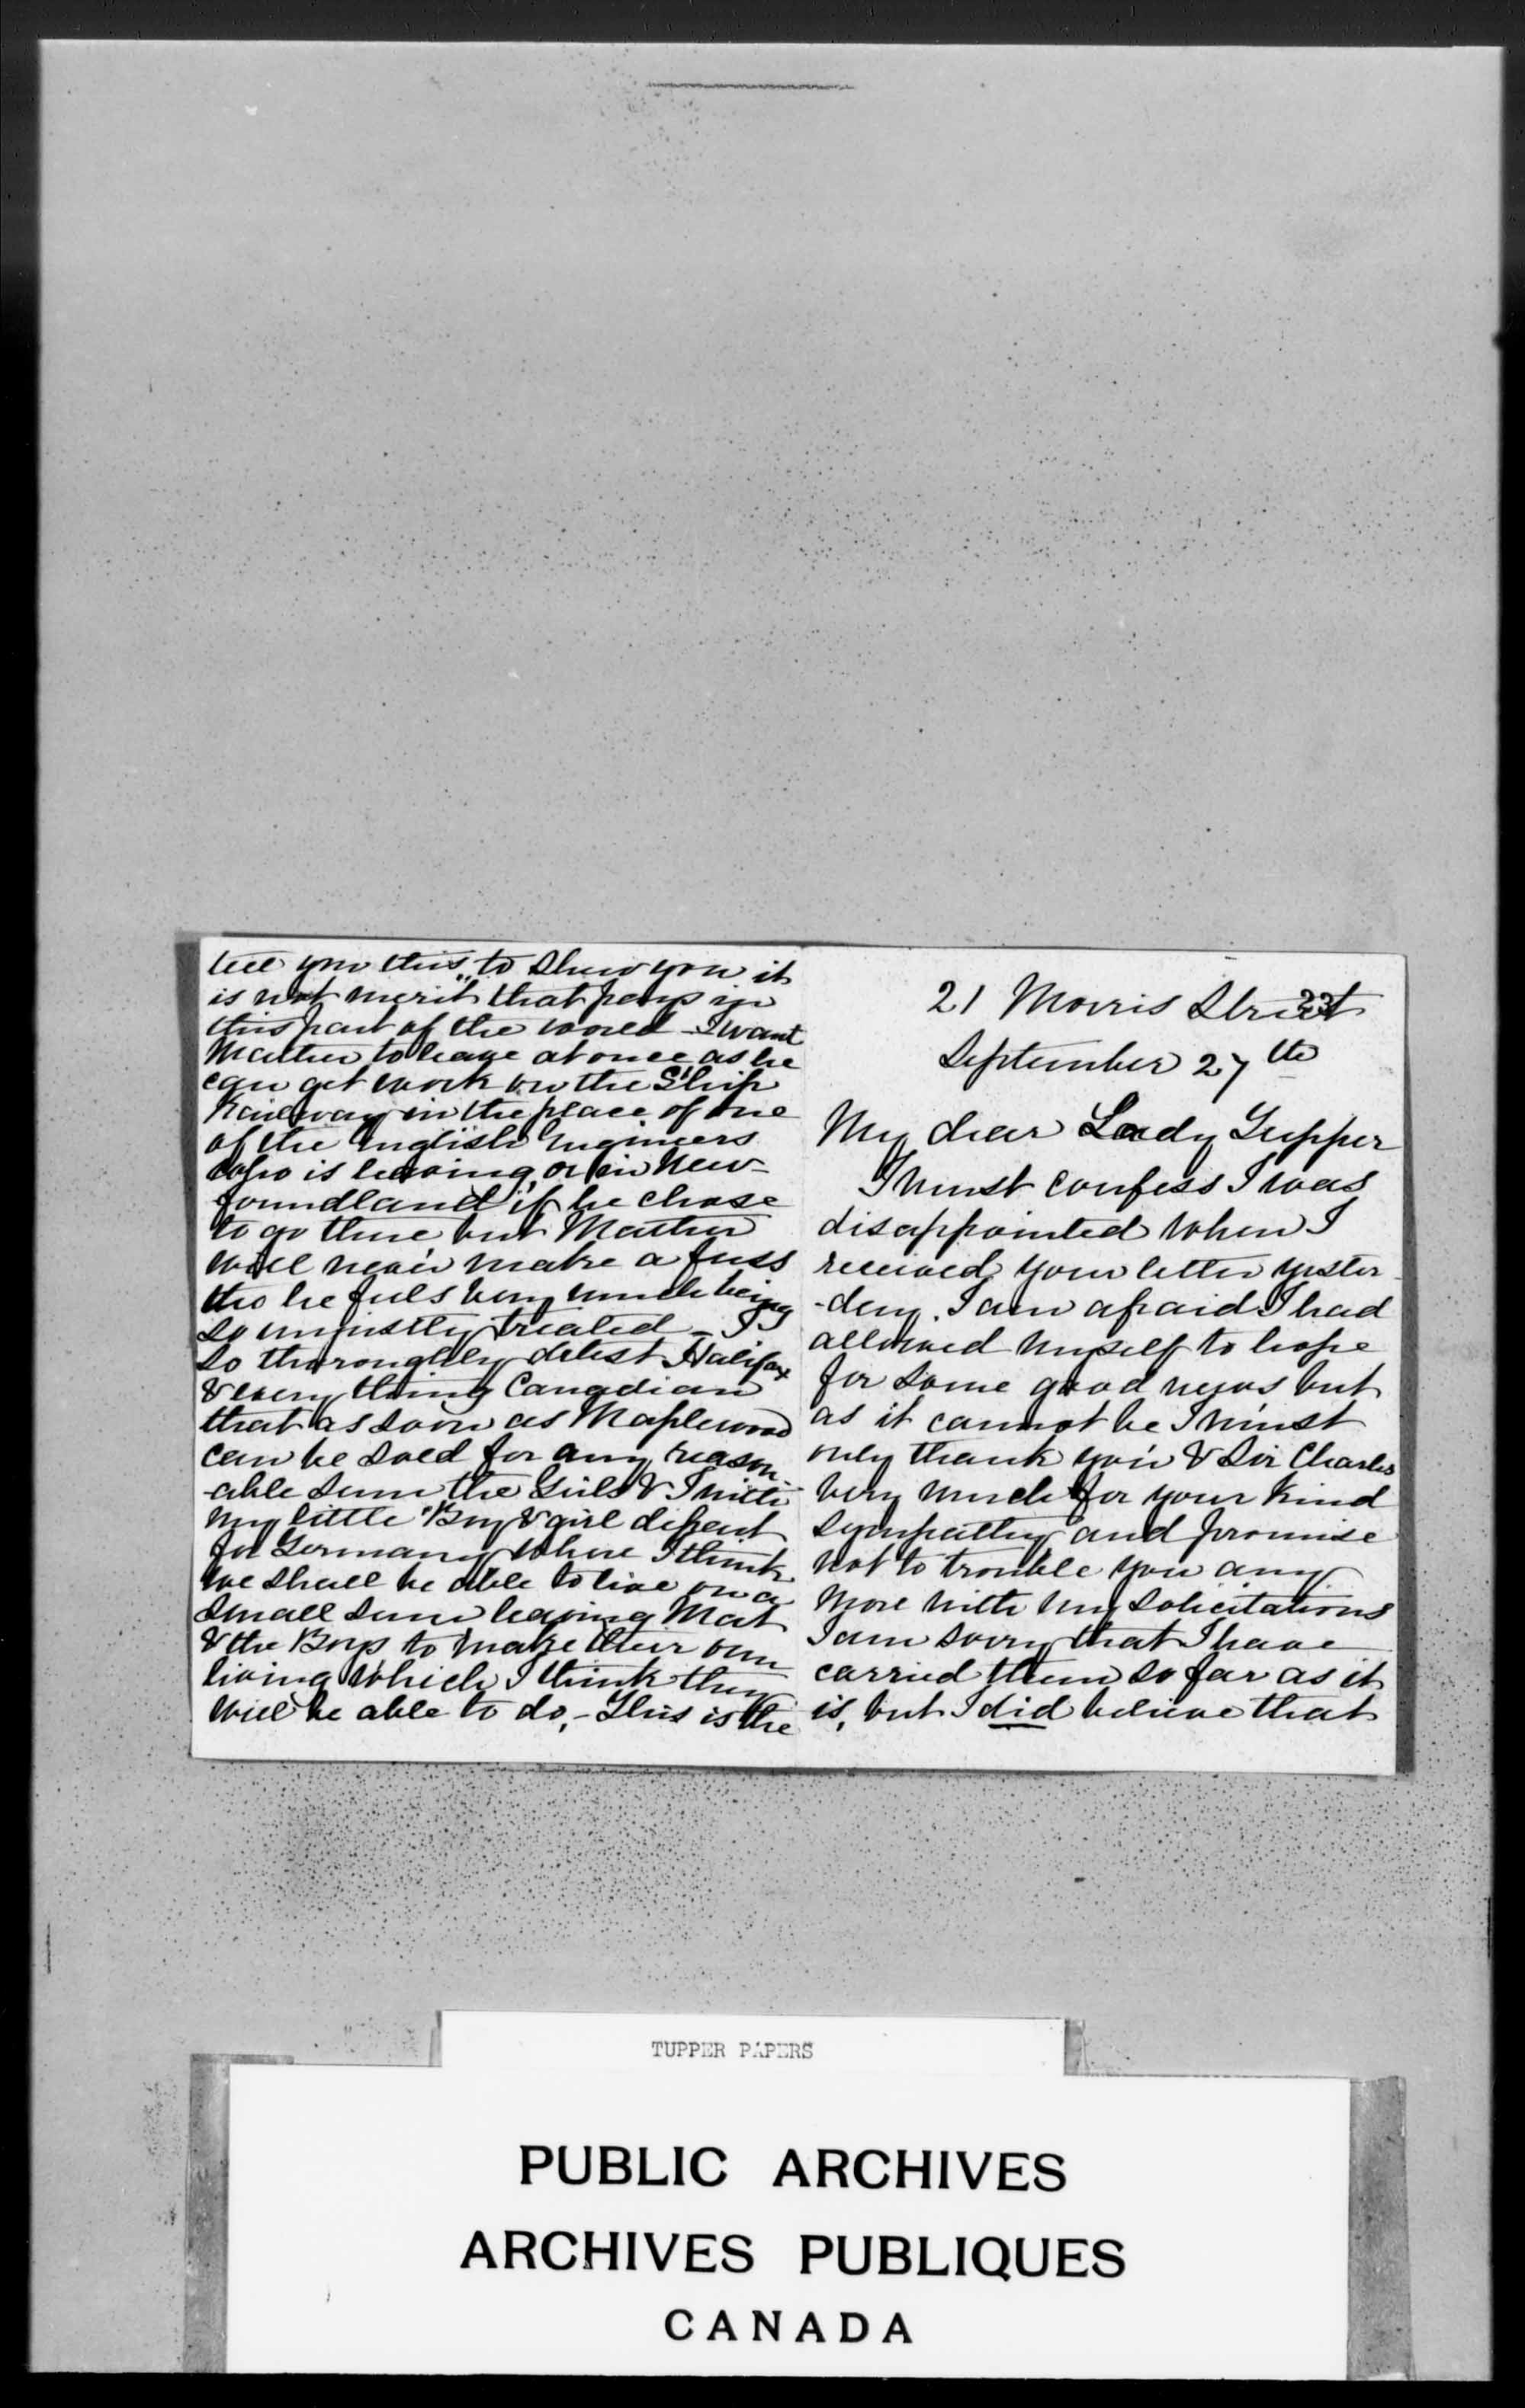 tell you this to shew you it
is not "merit" that pays in
this part of the world - I want
Mather to leave at once as he
can get work on the Ship
Railway in the place of one
of the English Engineers
who is leaving, or in New-
foundland if he chose
to go there but Mather
will never make a fuss
tho he feels very much being
so unjustly treated - I
so thoroughly detest Halifax
& every thing Canadian
that as soon as Maplewood
can be sold for any reason-
-able sum the Girls & I with
my little Boy & girl depart
for Germany where I think
we shall be able to live on a
small sum leaving Mat
& the Boys to make their own
living which I think they
will be able to do, - This is the
23
21 Morris Street
September 27th
My dear Lady Tupper
I must confess I was
disappointed when I
received your letter yester-
-day. I am afraid I had
allowed myself to hope
for some good news but
as it cannot be I must
only thank you & Sir Charles
very much for your kind
sympathy and promise
not to trouble you any
more with my solicitations
I am sorry that I have
carried them so far as it
is, but I did believe that
TUPPER PAPERS
PUBLIC ARCHIVES
ARCHIVES PUBLIQUES
CANADA